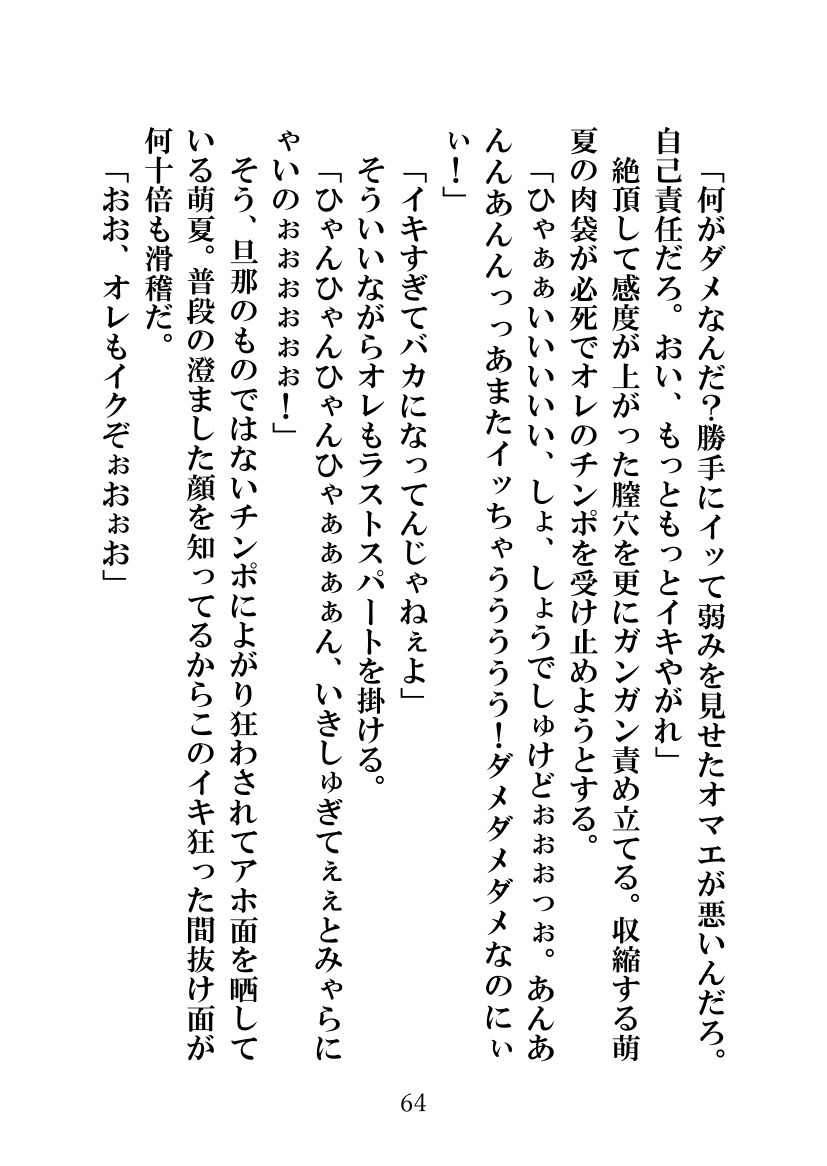 「何がダメなんだ？勝手にイッて弱みを見せたオマエが悪いんだろ。
自己責任だろ。おい、もっともっとイキやがれ」
　絶頂して感度が上がった膣穴を更にガンガン責め立てる。収縮する萌
夏の肉袋が必死でオレのチンポを受け止めようとする。
「ひゃぁぁいいいいい、しょ、しょうでしゅけどぉぉぉっぉ。あんあ
んんあんんっっあまたイッちゃうううう！ダメダメダメなのにぃ
ぃ！」
「イキすぎてバカになってんじゃねぇよ」
　そういいながらオレもラストスパートを掛ける。
「ひゃんひゃんひゃんひゃぁぁぁぁん、いきしゅぎてぇぇとみゃらに
ゃいのぉぉぉぉぉぉ！」
　そう、旦那のものではないチンポによがり狂わされてアホ面を晒して
いる萌夏。普段の澄ました顔を知ってるからこのイキ狂った間抜け面が
何十倍も滑稽だ。
「おお、オレもイクぞぉおぉお」
64